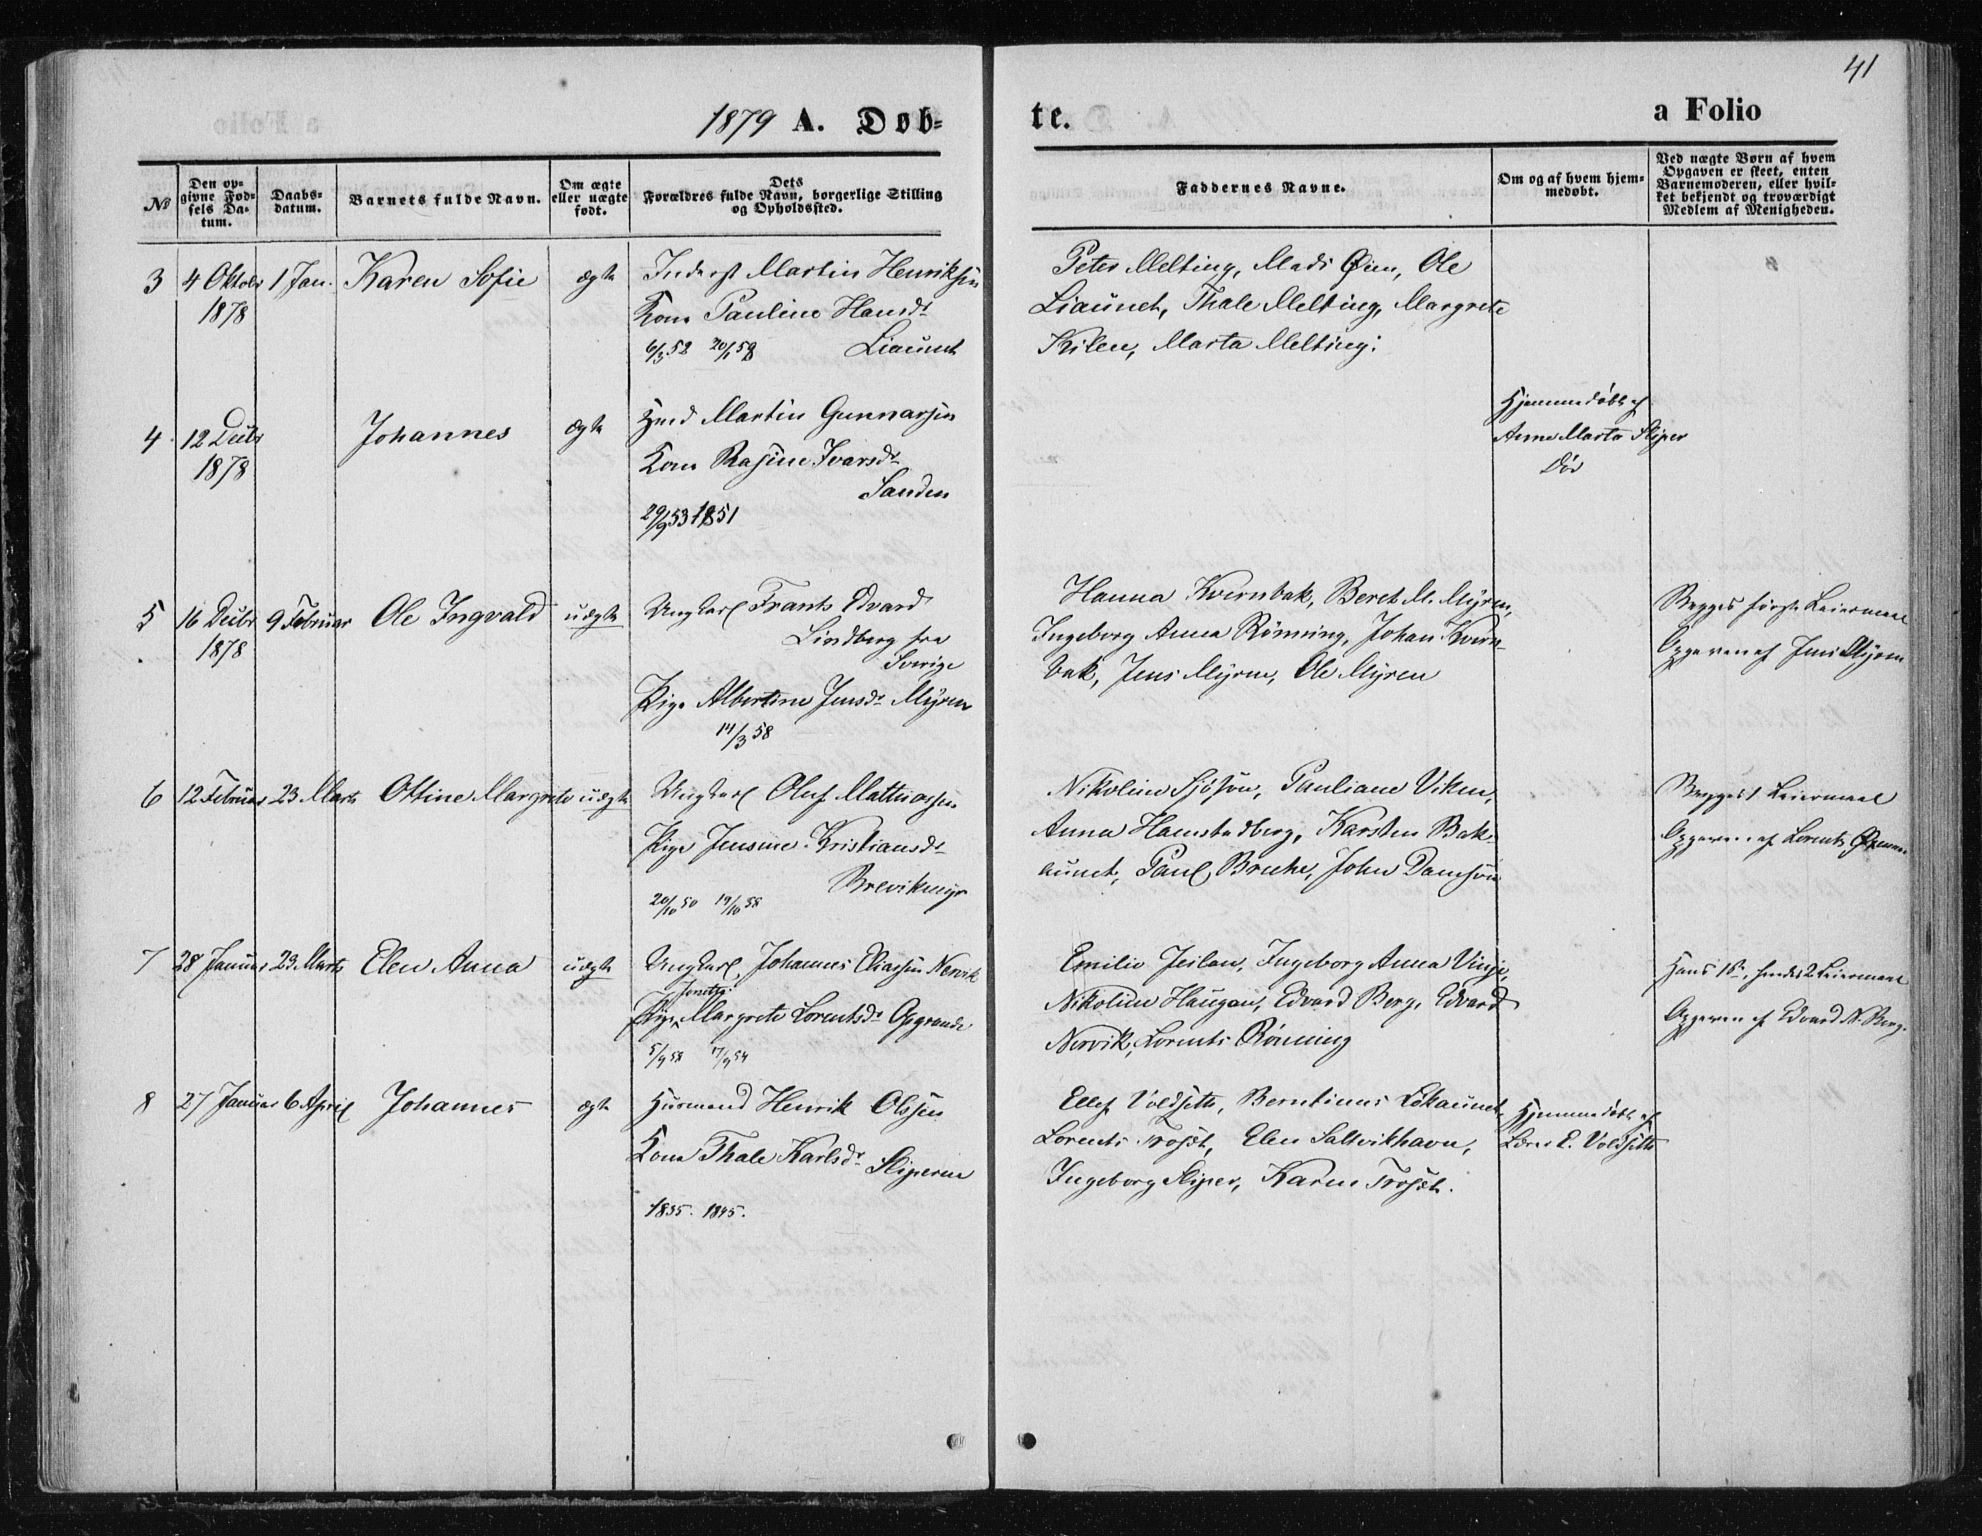 41
1879 A. Døb-
te.
a Folio
No
Den op-
givne Fød-
sels Da-
tum.
Daabs-
datum.
Barnets fulde Navn.
Om ægte
eller uægte
født.
Dets
Forældres fulde Navn, borgerlige Stilling
og Opholdssted.
Faddernes Navne.
Om og af hvem hjem-
medøbt.
Ved uægte Børn af hvem
Opgaven er skeet, enten
Barnemoderen, eller hvil-
ket bekjendt og troværdigt
Medlem af Menigheden.
3 4 Oktober 1 Jan. Karen Sofie ægte Inderst Martin Henriksen
1878 Kone Pauline Hansdr
6/3 52 20/1 58 Liaunet
Peter Melting, Mads Øien, Ole
Liaunet, Thale Melting, Margrete
Kilen, Marta Melting.
4 12 Decbr Johannes ægte Hmd Martin Gunnarsen
1878 Kone Rasine Ivarsdr
Sanden
29/9 53 1851
Hjemmedøbt af
Anne Marta Sliper
Død
5 16 Decbr 9 Februar Ole Ingvald uægte Ungkarl Frants Edvard
1878 Lindberg fra
Sverige
Pige Albertine Jensdr Myren
14/3 58
Hanna Kvernbak, Beret M. Myren,
Ingeborg Anna Rönning, Johan Kvern-
bak, Jens Myren, Ole Myren
Begges første Leiermaal
Opgaven af Jens Myren
6 12 Februar 23 Marts Ottine Margrete uægte Ungkarl Oluf Mathiassen
Pige Jensine Kristiansdr
20/10 50 19/10 58 Brevikmyr
Nikoline Sjøson, Pauliane Viken,
Anna Hamstadberg, Karsten Bak-
aunet, Paul Brekke, John Damson
Begges 1 Leiermaal
Opgaven af Lorents
7 28 Januar 23 Marts Elen Anna uægte Ungkarl Johannes Eliassen Nervik
Jonette
Pige Margrete Lorentsdr Opgrande
5/9 53 7/9 54
Emilie Jeilan, Ingeborg Anna Vinje,
Nikoline Haugan, Edvard Berg, Edvard
Nervik, Lorents Rönning
Hans 1ste, hendes 2 Leiermaal
Opgaven af Edvard N. Berg.
8 27 Januar 6 April Johannes ægte Husmand Henrik Olsen
Kone Thale Karlsdr Sliperne
1835. 1845.
Ellef Voldsette, Berntinus Lökaunet,
Lorents Trosæt, Elen Saltvikhavn,
Ingeborg Sliper, Karen Trosæt.
Hjemmedøbt af
Lærer E. Voldsette